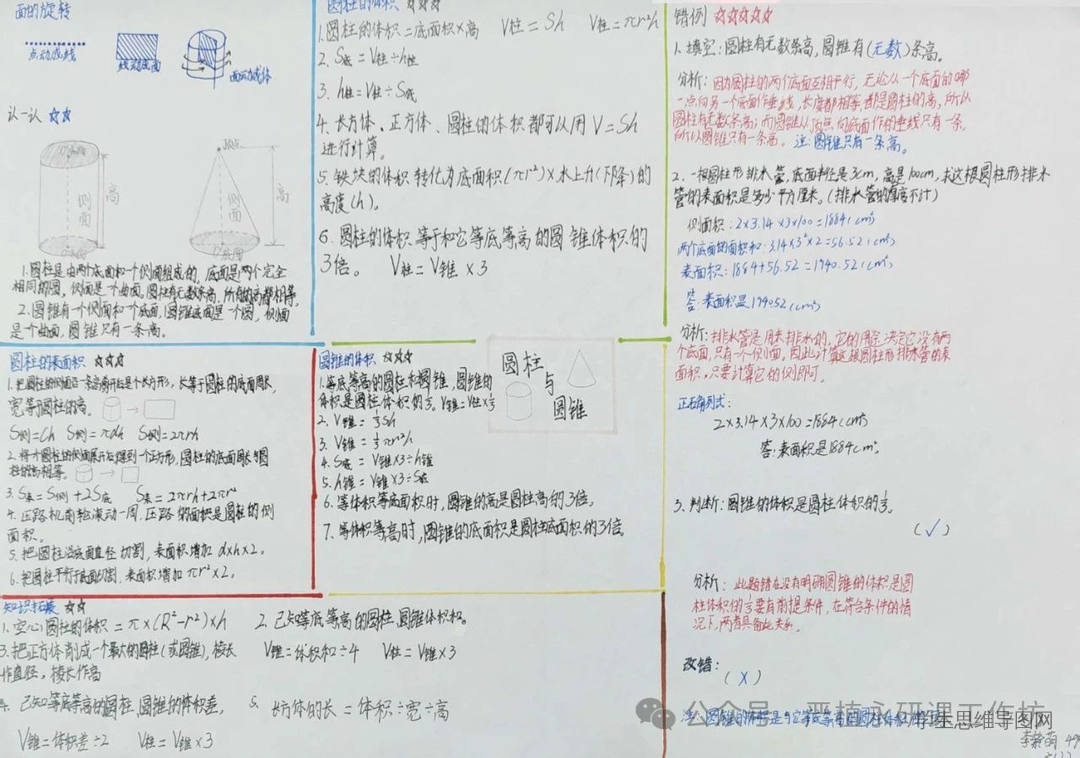 面的旋转
点动成线
线动成面
面动成体
认一认 ☆☆
侧面
高
侧面
高
1.圆柱是由两个底面和一个侧面组成的。底面是两个完全
相同的圆，侧面是一个曲面，圆柱有无数条高，所有的高都相等。
2.圆锥有一个侧面和一个底面，圆锥底面是一个圆，侧面
是一个曲面，圆锥只有一条高。
圆柱的体积 ☆☆☆
1.圆柱的体积=底面积×高 V柱=Sh V柱=πr²h
2. S底=V柱÷h柱
3. h柱=V柱÷S底
4. 长方体、正方体、圆柱的体积都可以用V=Sh
进行计算。
5.铁块的体积转化为底面积(πr²)×水上升(下降)的
高度(h)。
6.圆柱的体积等于和它等底等高的圆锥体积的
3倍。 V柱=V锥×3
圆柱的表面积 ☆☆☆
1.把圆柱的侧面沿一条高展开后是个长方形，长等于圆柱的底面周长，
宽等于圆柱的高。
S侧=Ch S侧=πdh S侧=2πrh
2.将个圆柱的侧面展开后得到一个正方形，圆柱的底面周长与圆
柱的高相等。
3. S表=S侧+2S底 S表=2πrh+2πr²
4.压路机前轮滚动一周，压路的面积是圆柱的侧
面积。
5.把圆柱沿底面直径切割，表面积增加d×h×2。
6.把圆柱平行于底面切割，表面积增加πr²×2。
圆锥的体积 ☆☆☆
1.等底等高的圆柱和圆锥，圆锥的
体积是圆柱体积的⅓。V锥=V柱×⅓
2. V锥=⅓Sh
3. V锥=⅓πr²h
4. S底=V锥×3÷h锥
5. h锥=V锥×3÷S底
6.等体积等底面积时，圆锥的高是圆柱高的3倍。
7.等体积等高时，圆锥的底面积是圆柱底面积的3倍。
圆柱
与
圆锥
知识拓展 ☆☆
1.空心圆柱的体积=π×(R²-r²)×h
2.已知等底等高的圆柱，圆锥体积和。
V锥=体积和÷4 V柱=V锥×3
3.把正方体削成一个最大的圆柱(或圆锥)，棱长
作直径，棱长作高
4.已知等底等高的圆柱，圆锥的体积差，
V锥=体积差÷2 V柱=V锥×3
5.长方体的长=体积÷宽÷高
错例 ☆☆☆☆☆
1.填空：圆柱有无数条高，圆锥有(无数)条高。
分析：因为圆柱的两个底面互相平行，无论从一个底面的哪
一点向另一个底面作垂线，长度都相等，都是圆柱的高，所以
圆柱有无数条高；而圆锥从顶点向底面作的垂线只有一条，
所以圆锥只有一条高。 注：圆锥只有一条高。
2.一根圆柱形排水管，底面半径是3cm，高是100cm，求这根圆柱形排水
管的表面积是多少平方厘米。(排水管的厚度不计)
侧面积：2×3.14×3×100=1884(cm²)
两个底面的面积和：3.14×3²×2=56.52(cm²)
表面积：1884+56.52=1940.52(cm²)
答：表面积是1940.52(cm²)
分析：排水管是用来排水的，它的用途决定它没有两
个底面，只有一个侧面，因此计算这根圆柱形排水管的表
面积，只要计算它的侧即可。
正确列式：
2×3.14×3×100=1884(cm²)
答：表面积是1884cm²。
3.判断：圆锥的体积是圆柱体积的⅓。
(√)
分析：此题错在没有明确圆锥的体积是圆
柱体积的⅓要有前提条件，在符合条件的情
况下，两者具备此关系。
改错：
(×)
公众号·严植永研课工作坊
学生思维导图网